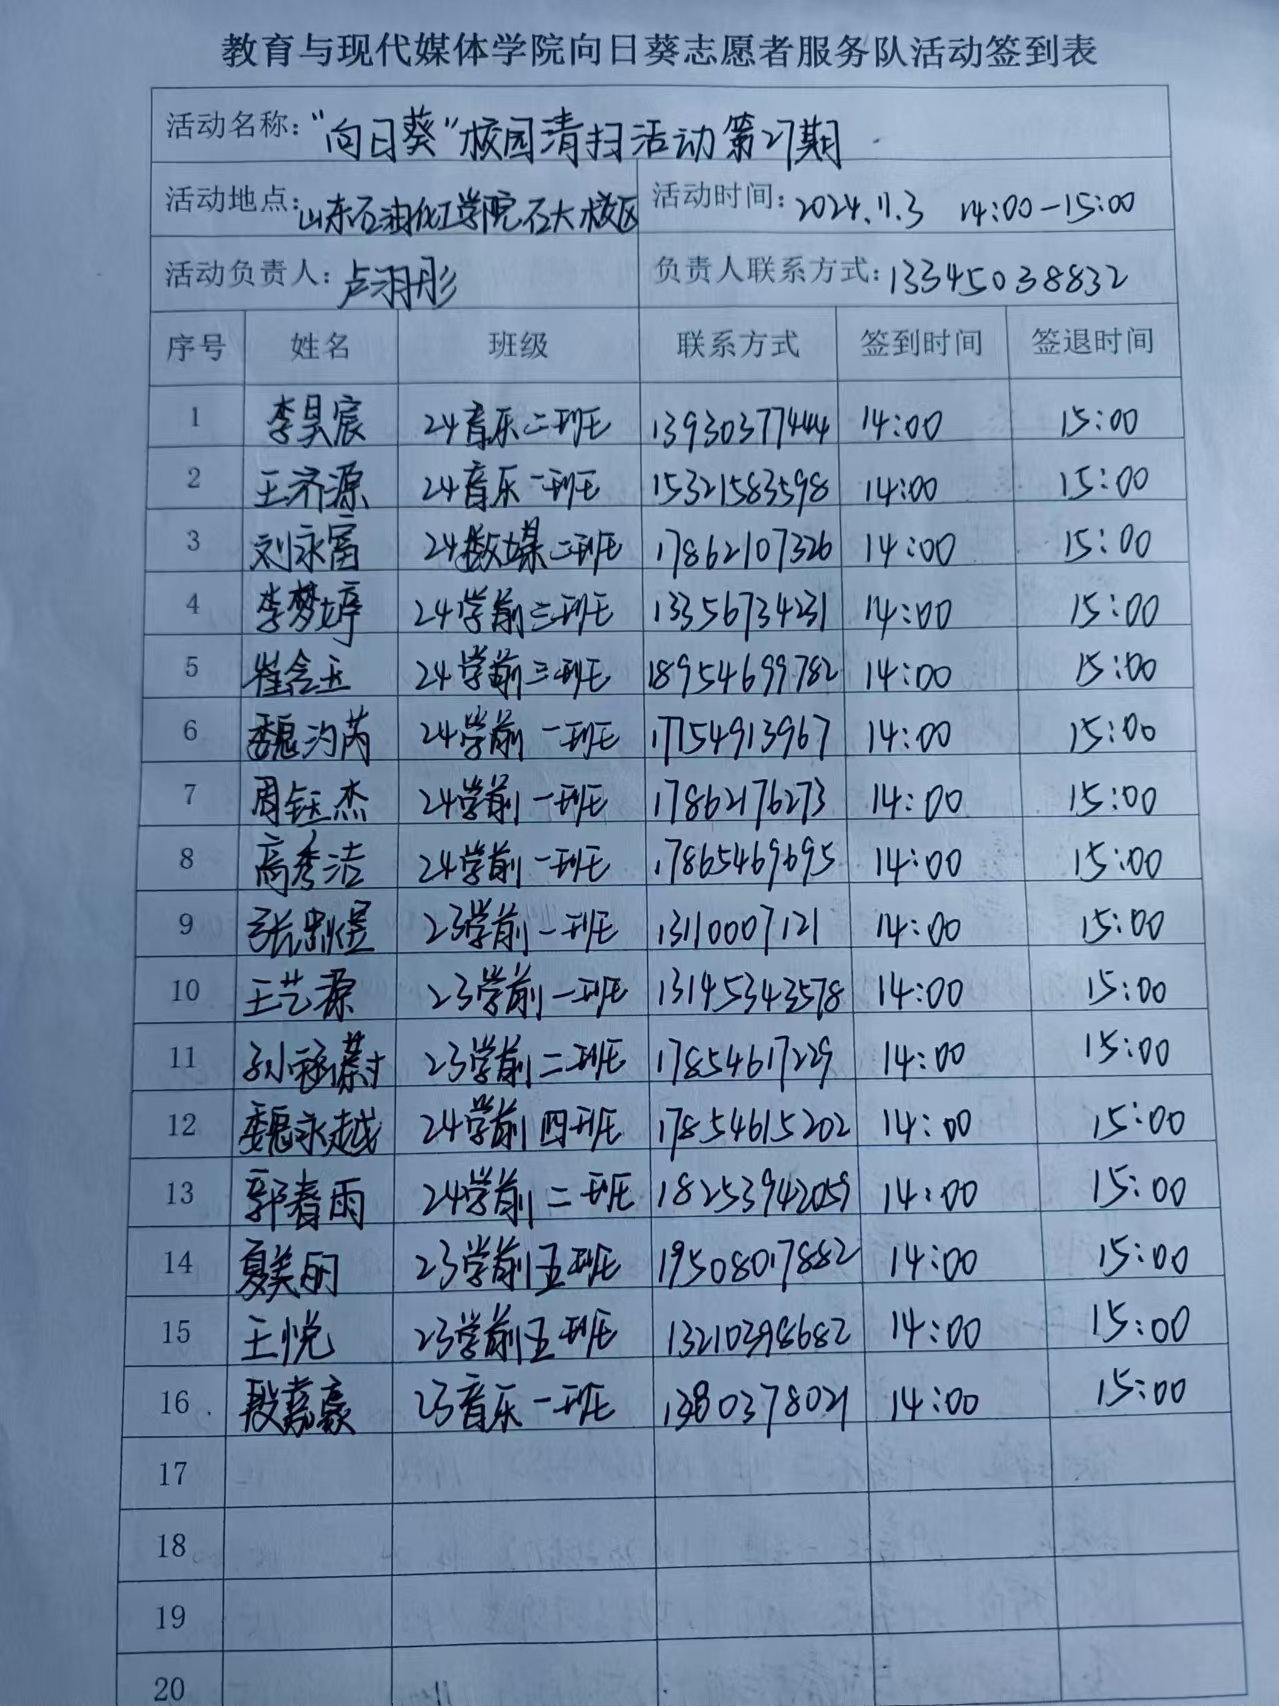 教育与现代媒体学院向日葵志愿者服务队活动签到表
活动名称：“向日葵”校园清扫活动第27期
活动地点：山东石油化工学院石大校区 活动时间：2024.11.3 14:00-15:00
活动负责人：卢羽彤 负责人联系方式：13345038832
序号 姓名 班级 联系方式 签到时间 签退时间
1 李昊宸 24音乐二班 13930377444 14:00 15:00
2 王济源 24音乐一班 15321583598 14:00 15:00
3 刘永富 24数媒二班 17862107326 14:00 15:00
4 李梦婷 24学前三班 13356734231 14:00 15:00
5 崔含玉 24学前三班 18954699782 14:00 15:00
6 魏汮芮 24学前一班 17154913967 14:00 15:00
7 周钰杰 24学前一班 17862176273 14:00 15:00
8 高秀洁 24学前一班 17865469695 14:00 15:00
9 张忠煜 23学前一班 13110007121 14:00 15:00
10 王艺源 23学前一班 13145343578 14:00 15:00
11 孙涵蔚 23学前二班 17854617229 14:00 15:00
12 魏永越 24学前四班 17854615202 14:00 15:00
13 郭春雨 24学前二班 18253942059 14:00 15:00
14 夏美丽 23学前五班 19508017882 14:00 15:00
15 王悦 23学前五班 13210398682 14:00 15:00
16 段嘉豪 23音乐一班 14:00 15:00
17
18
19
20